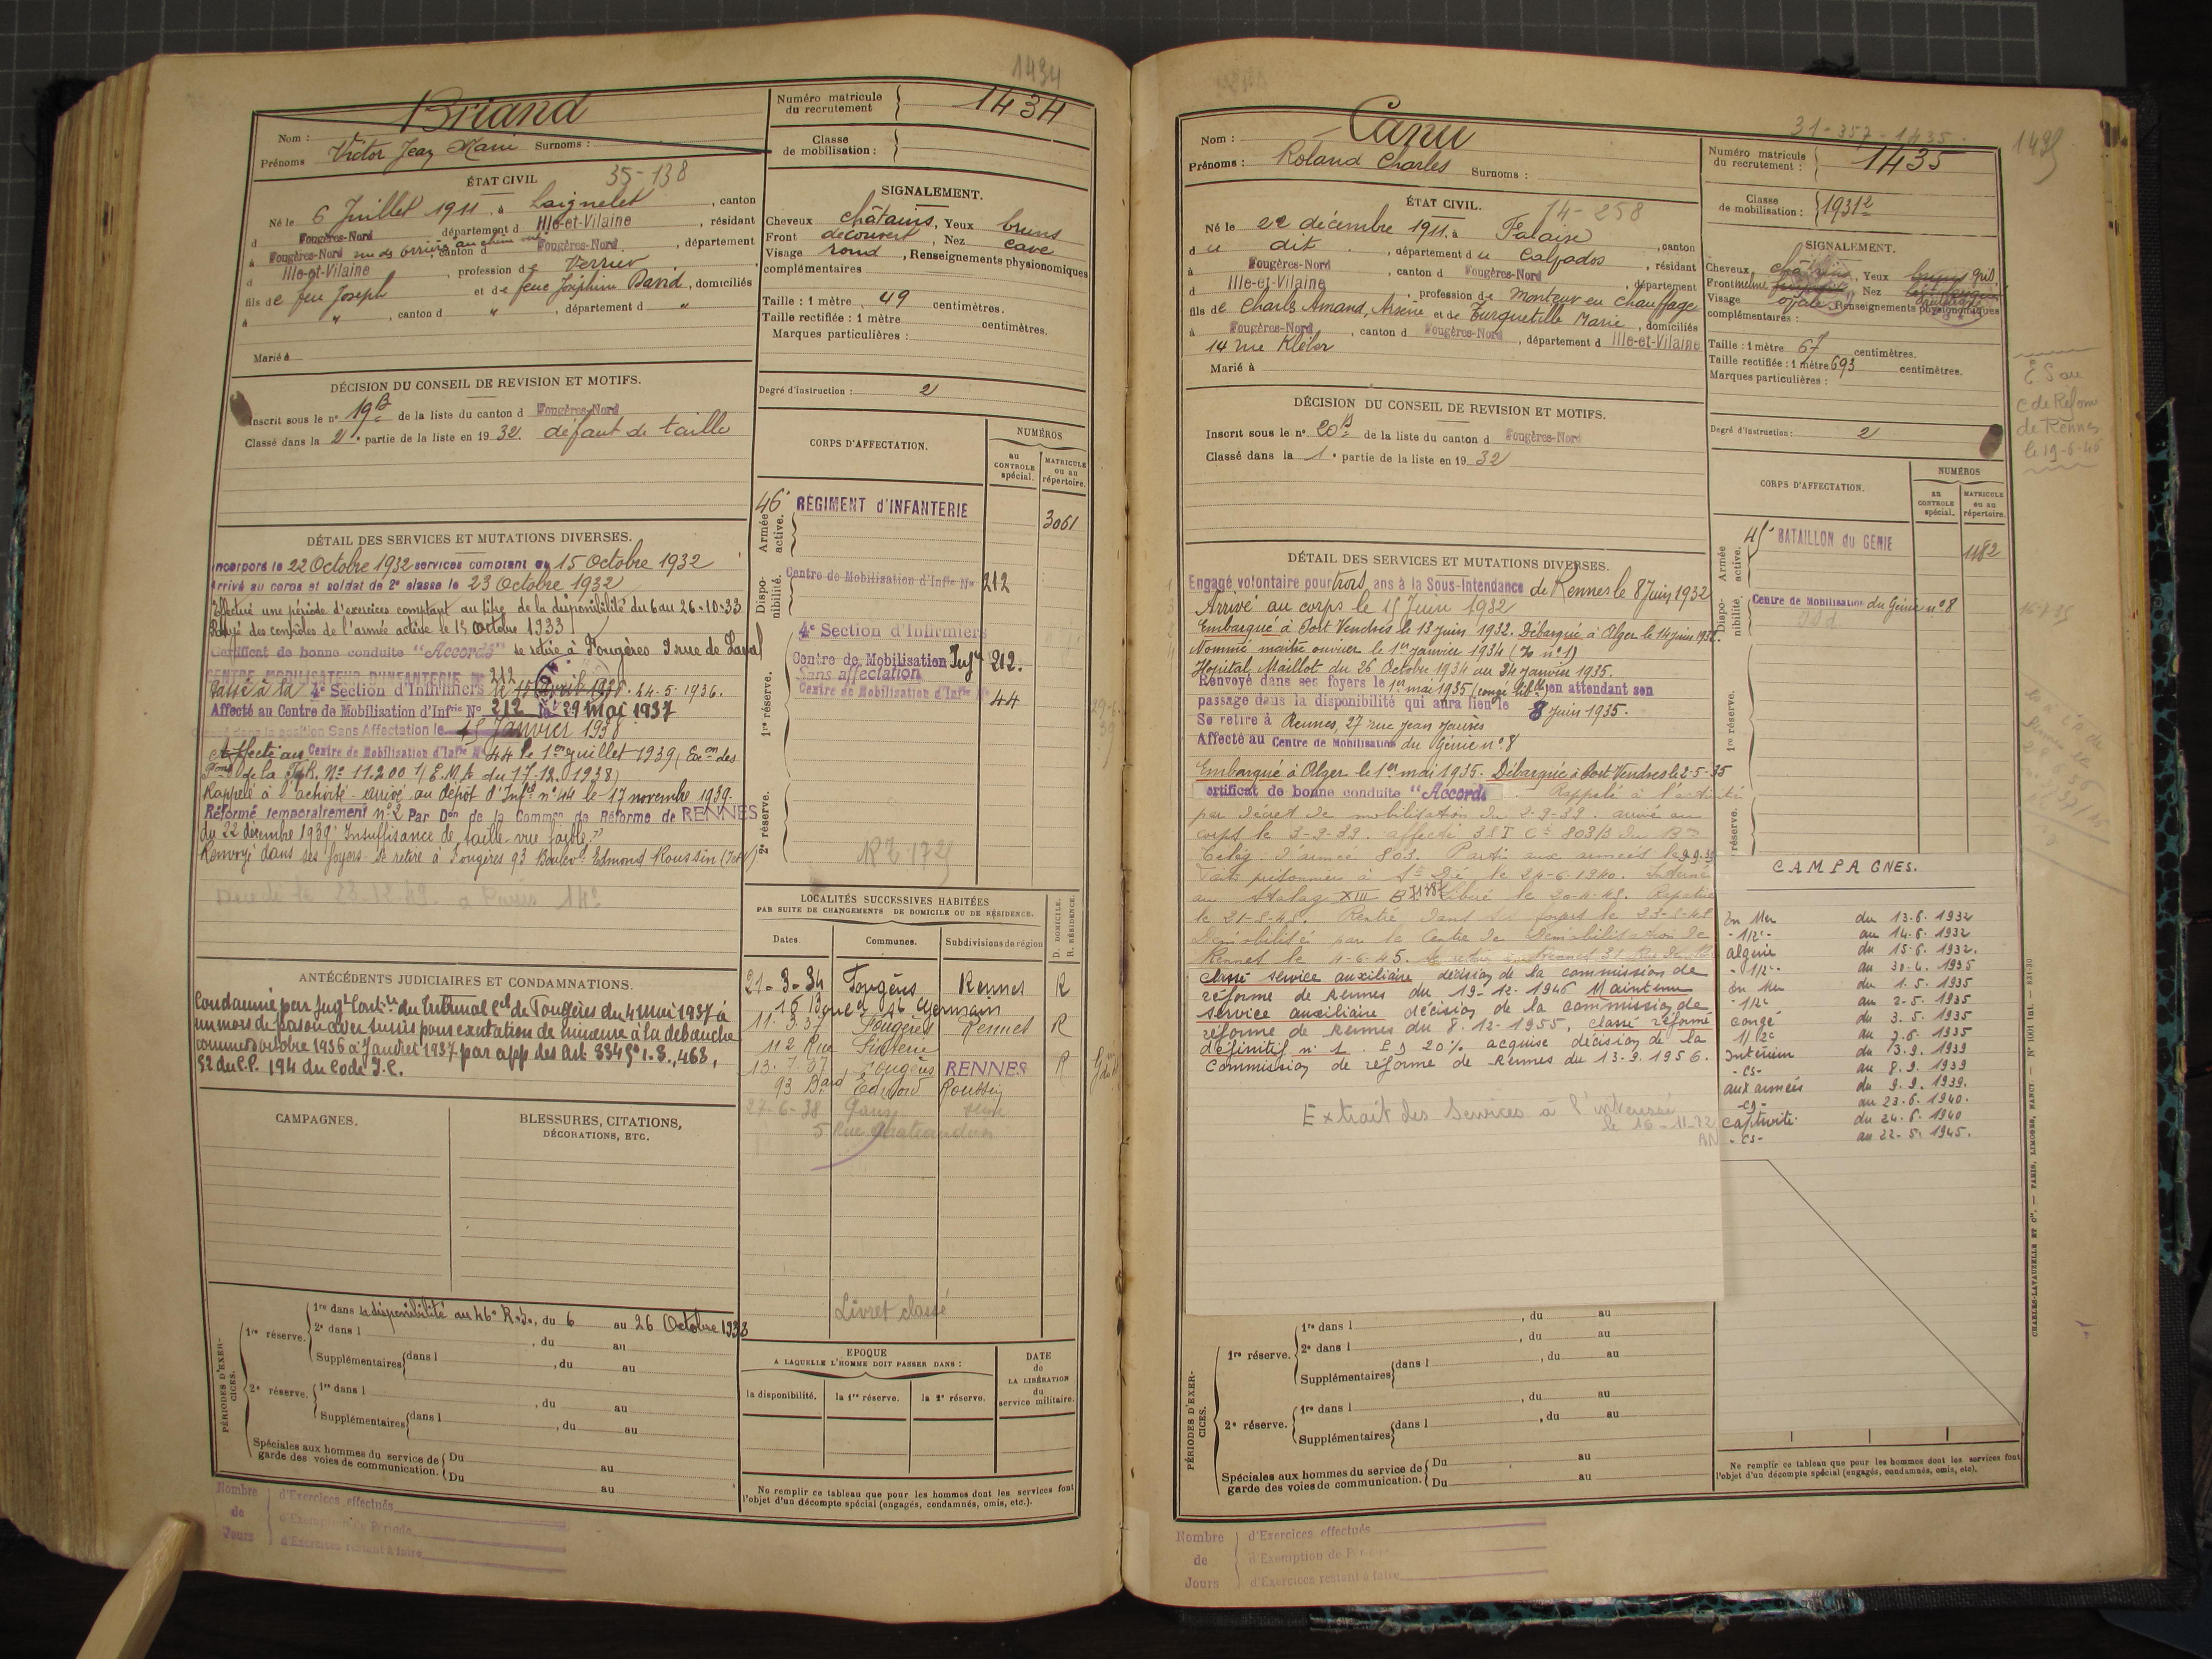 1434
Briand
Nom :
Prénoms Victor Jean Marie Surnoms :
Numéro matricule du recrutement 1434
Classe de mobilisation :
ÉTAT CIVIL 35-138
Né le 6 Juillet 1911, à Laignelet, canton
d Fougères-Nord département d Ille-et-Vilaine, résidant
à Fougères-Nord, canton d Fougères-Nord, département
d Ille-et-Vilaine, profession de Verrier
fils de feu Joseph et de feue Joséphine David, domiciliés
à " , canton d " , département d "
Marié à
SIGNALEMENT.
Cheveux châtains, Yeux bruns
Front découvert, Nez cave
Visage rond, Renseignements physionomiques
complémentaires
Taille : 1 mètre 49 centimètres.
Taille rectifiée : 1 mètre centimètres.
Marques particulières :
DÉCISION DU CONSEIL DE REVISION ET MOTIFS.
Inscrit sous le n° 19 B de la liste du canton d Fougères-Nord
Classé dans la 2e partie de la liste en 1932. défaut de taille
Degré d'instruction : 2
CORPS D'AFFECTATION.
NUMÉROS
au CONTROLE spécial.
MATRICULE ou au répertoire.
Armée active.
46e RÉGIMENT d'INFANTERIE 3061
Disponibilité.
Centre de Mobilisation d'Infie No 212
1re réserve.
4e Section d'Infirmiers
Centre de Mobilisation Infie 212.
Sans affectation
Centre de Mobilisation d'Infie N° 44
2e réserve.
DÉTAIL DES SERVICES ET MUTATIONS DIVERSES.
Incorporé le 22 Octobre 1932 services comptant du 15 Octobre 1932
Arrivé au corps et soldat de 2e classe le 23 Octobre 1932
Effectué une période d'exercices comptant au titre de la disponibilité du 6 au 26-10-33
Rayé des contrôles de l'armée active le 15 Octobre 1933
Certificat de bonne conduite "Accordé" se retire à Fougères 3 rue de Laval
CENTRE MOBILISATEUR D'INFANTERIE N° 212
Passé à la 4e Section d'Infirmiers le 15 Avril 1936. 24-5-1936.
Affecté au Centre de Mobilisation d'Infrie No 212 le 29 Mai 1937
Classé dans la position Sans Affectation le 15 Janvier 1938
Affecté au Centre de Mobilisation d'Infie N° 44 le 1er juillet 1939 (Exon des
de la N° 11.200 1/E.M.A du 17-12-1938)
Rappelé à l'activité - arrivé au dépôt d'Infie n° 44 le 17 novembre 1939.
Réformé temporairement n° 2 Par Don de la Common de Réforme de RENNES
du 22 décembre 1939 "Insuffisance de taille - vue faible"
Renvoyé dans ses foyers. Se retire à Fougères 93 Boulev. Edmond Roussin (I et V)
Décédé le 23.12.49. à Paris 14e
LOCALITÉS SUCCESSIVES HABITÉES
PAR SUITE DE CHANGEMENTS DE DOMICILE OU DE RÉSIDENCE.
Dates. Communes. Subdivisions de région D. DOMICILE. R. RÉSIDENCE.
21-3-34 Fougères Rennes R
11.3.37 Fougères Rennes R
112 Rue Pinterie
13.7.37 Fougères RENNES R
93 Bard Edmond Roussin
27-6-38 Paris Seine
5 Rue Chateaudun
Livret classé
ANTÉCÉDENTS JUDICIAIRES ET CONDAMNATIONS.
Condamné par Jugt Contre du Tribunal Cel de Fougères du 4 Mai 1937 à
un mois de prison avec sursis pour excitation de mineure à la débauche
commis d'octobre 1936 à Janvier 1937 par app des Art. 334 § 1.3., 463,
52 du C.P. 194 du Code I.C.
CAMPAGNES.
BLESSURES, CITATIONS, DÉCORATIONS, ETC.
PÉRIODES D'EXERCICES.
1re réserve. 1re dans la disponibilité au 46e R.I., du 6 au 26 Octobre 1933
2e dans l , du au
Supplémentaires dans l , du au
2e réserve. 1re dans l , du au
Supplémentaires dans l , du au
Spéciales aux hommes du service de garde des voies de communication. Du au
Du au
EPOQUE
A LAQUELLE L'HOMME DOIT PASSER DANS :
la disponibilité. la 1re réserve. la 2e réserve.
DATE de LA LIBÉRATION du service militaire.
Ne remplir ce tableau que pour les hommes dont les services font
l'objet d'un décompte spécial (engagés, condamnés, omis, etc.).
Nombre de Jours
d'Exercices effectués
d'Exemption de Période
d'Exercices restant à faire
31-357-1435.
1435
Canu
Nom :
Prénoms : Roland Charles Surnoms :
Numéro matricule du recrutement : 1435
Classe de mobilisation : 1931 2
ÉTAT CIVIL. 14-258
Né le 22 décembre 1911, à Falaise, canton
du dit, département du Calvados, résidant
à Fougères-Nord, canton d Fougères-Nord, département
d Ille-et-Vilaine, profession de Monteur en chauffage
fils de Charles Amand, Arsène et de Turquetille Marie, domiciliés
à Fougères-Nord, canton d Fougères-Nord, département d Ille-et-Vilaine
14 rue Kléber
Marié à
SIGNALEMENT.
Cheveux châtains, Yeux
Front , Nez
Visage ovale Renseignements physionomiques
complémentaires :
Taille : 1 mètre 67 centimètres.
Taille rectifiée : 1 mètre 693 centimètres.
Marques particulières :
de Rennes
le 19-6-46
DÉCISION DU CONSEIL DE REVISION ET MOTIFS.
Inscrit sous le n° 20 B de la liste du canton d Fougères-Nord
Classé dans la 1e partie de la liste en 1932
Degré d'instruction : 2
CORPS D'AFFECTATION.
NUMÉROS
au CONTROLE spécial.
MATRICULE ou au répertoire.
Armée active.
45e BATAILLON du GÉNIE 1182
Disponibilité.
Centre de Mobilisation du Génie n° 8
1re réserve.
réserve.
DÉTAIL DES SERVICES ET MUTATIONS DIVERSES.
Engagé volontaire pour trois ans à la Sous-Intendance de Rennes le 8 Juin 1932
Arrivé au corps le 15 Juin 1932
Embarqué à Port Vendres le 13 Juin 1932. Débarqué à Alger le 14 juin 1932.
Nommé maître ouvrier le 1er janvier 1934
Hôpital Maillot du 26 Octobre 1934 au 24 janvier 1935.
Renvoyé dans ses foyers le 1er mai 1935 (congé lible) en attendant son
passage dans la disponibilité qui aura lieu le 8 Juin 1935.
Se retire à Rennes, 27 rue Jean Jaurès
Affecté au Centre de Mobilisation du Génie n° 8
Embarqué à Alger le 1er mai 1935. Débarqué à Port Vendres le 2-5-35
Certificat de bonne conduite "Accordé". Rappelé à l'activité
par décret de mobilisation du 2-9-39. arrivé au
corps le 3-9-39. affecté Cie 803/B du Bon
Télég. d'armée 803. Parti aux armées le 9-9-39
Fait prisonnier à St Dié le 24-6-1940. Interné
au Stalag XIII B Libéré le 20-4-45. Rapatrié
le 21-5-45. Rentré dans ses foyers le 23-5-45
Démobilisé par le Centre de Démobilisation de
Rennes le 4-6-45.
classé service auxiliaire décision de la commission de
réforme de Rennes du 19-12-1946 Maintenu
service auxiliaire décision de la commission de
réforme de Rennes du 8.12-1955, classé réformé
définitif n° 1. P D 20% acquise décision de la
Commission de réforme de Rennes du 13.9.1956.
Extrait des services à l'intéressé
le 16-11-72
AN
CAMPAGNES.
En Mer du 13.6.1932
-1/2- au 14.6.1932
Algérie du 15.6.1932.
-1/2- au 30.4.1935
En Mer du 1.5.1935
-1/2- au 2.5.1935
Congé du 3.5.1935
1/2 au 7.6.1935
Intérieur du 3.9.1939
-CS- au 8.9.1939
aux armées du 9.9.1939.
-CD- au 23.6.1940.
Captivité du 24.6.1940
-CS- au 22-5-1945.
PÉRIODES D'EXERCICES.
1re réserve. 1re dans l , du au
2e dans l , du au
Supplémentaires dans l , du au
2e réserve. 1re dans l , du au
Supplémentaires dans l , du au
Spéciales aux hommes du service de garde des voies de communication. Du au
Du au
Ne remplir ce tableau que pour les hommes dont les services font
l'objet d'un décompte spécial (engagés, condamnés, omis, etc).
CHARLES-LAVAUZELLE ET Cie. — PARIS, LIMOGES, NANCY.
Nombre de Jours
d'Exercices effectués
d'Exemption de Période
d'Exercices restant à faire